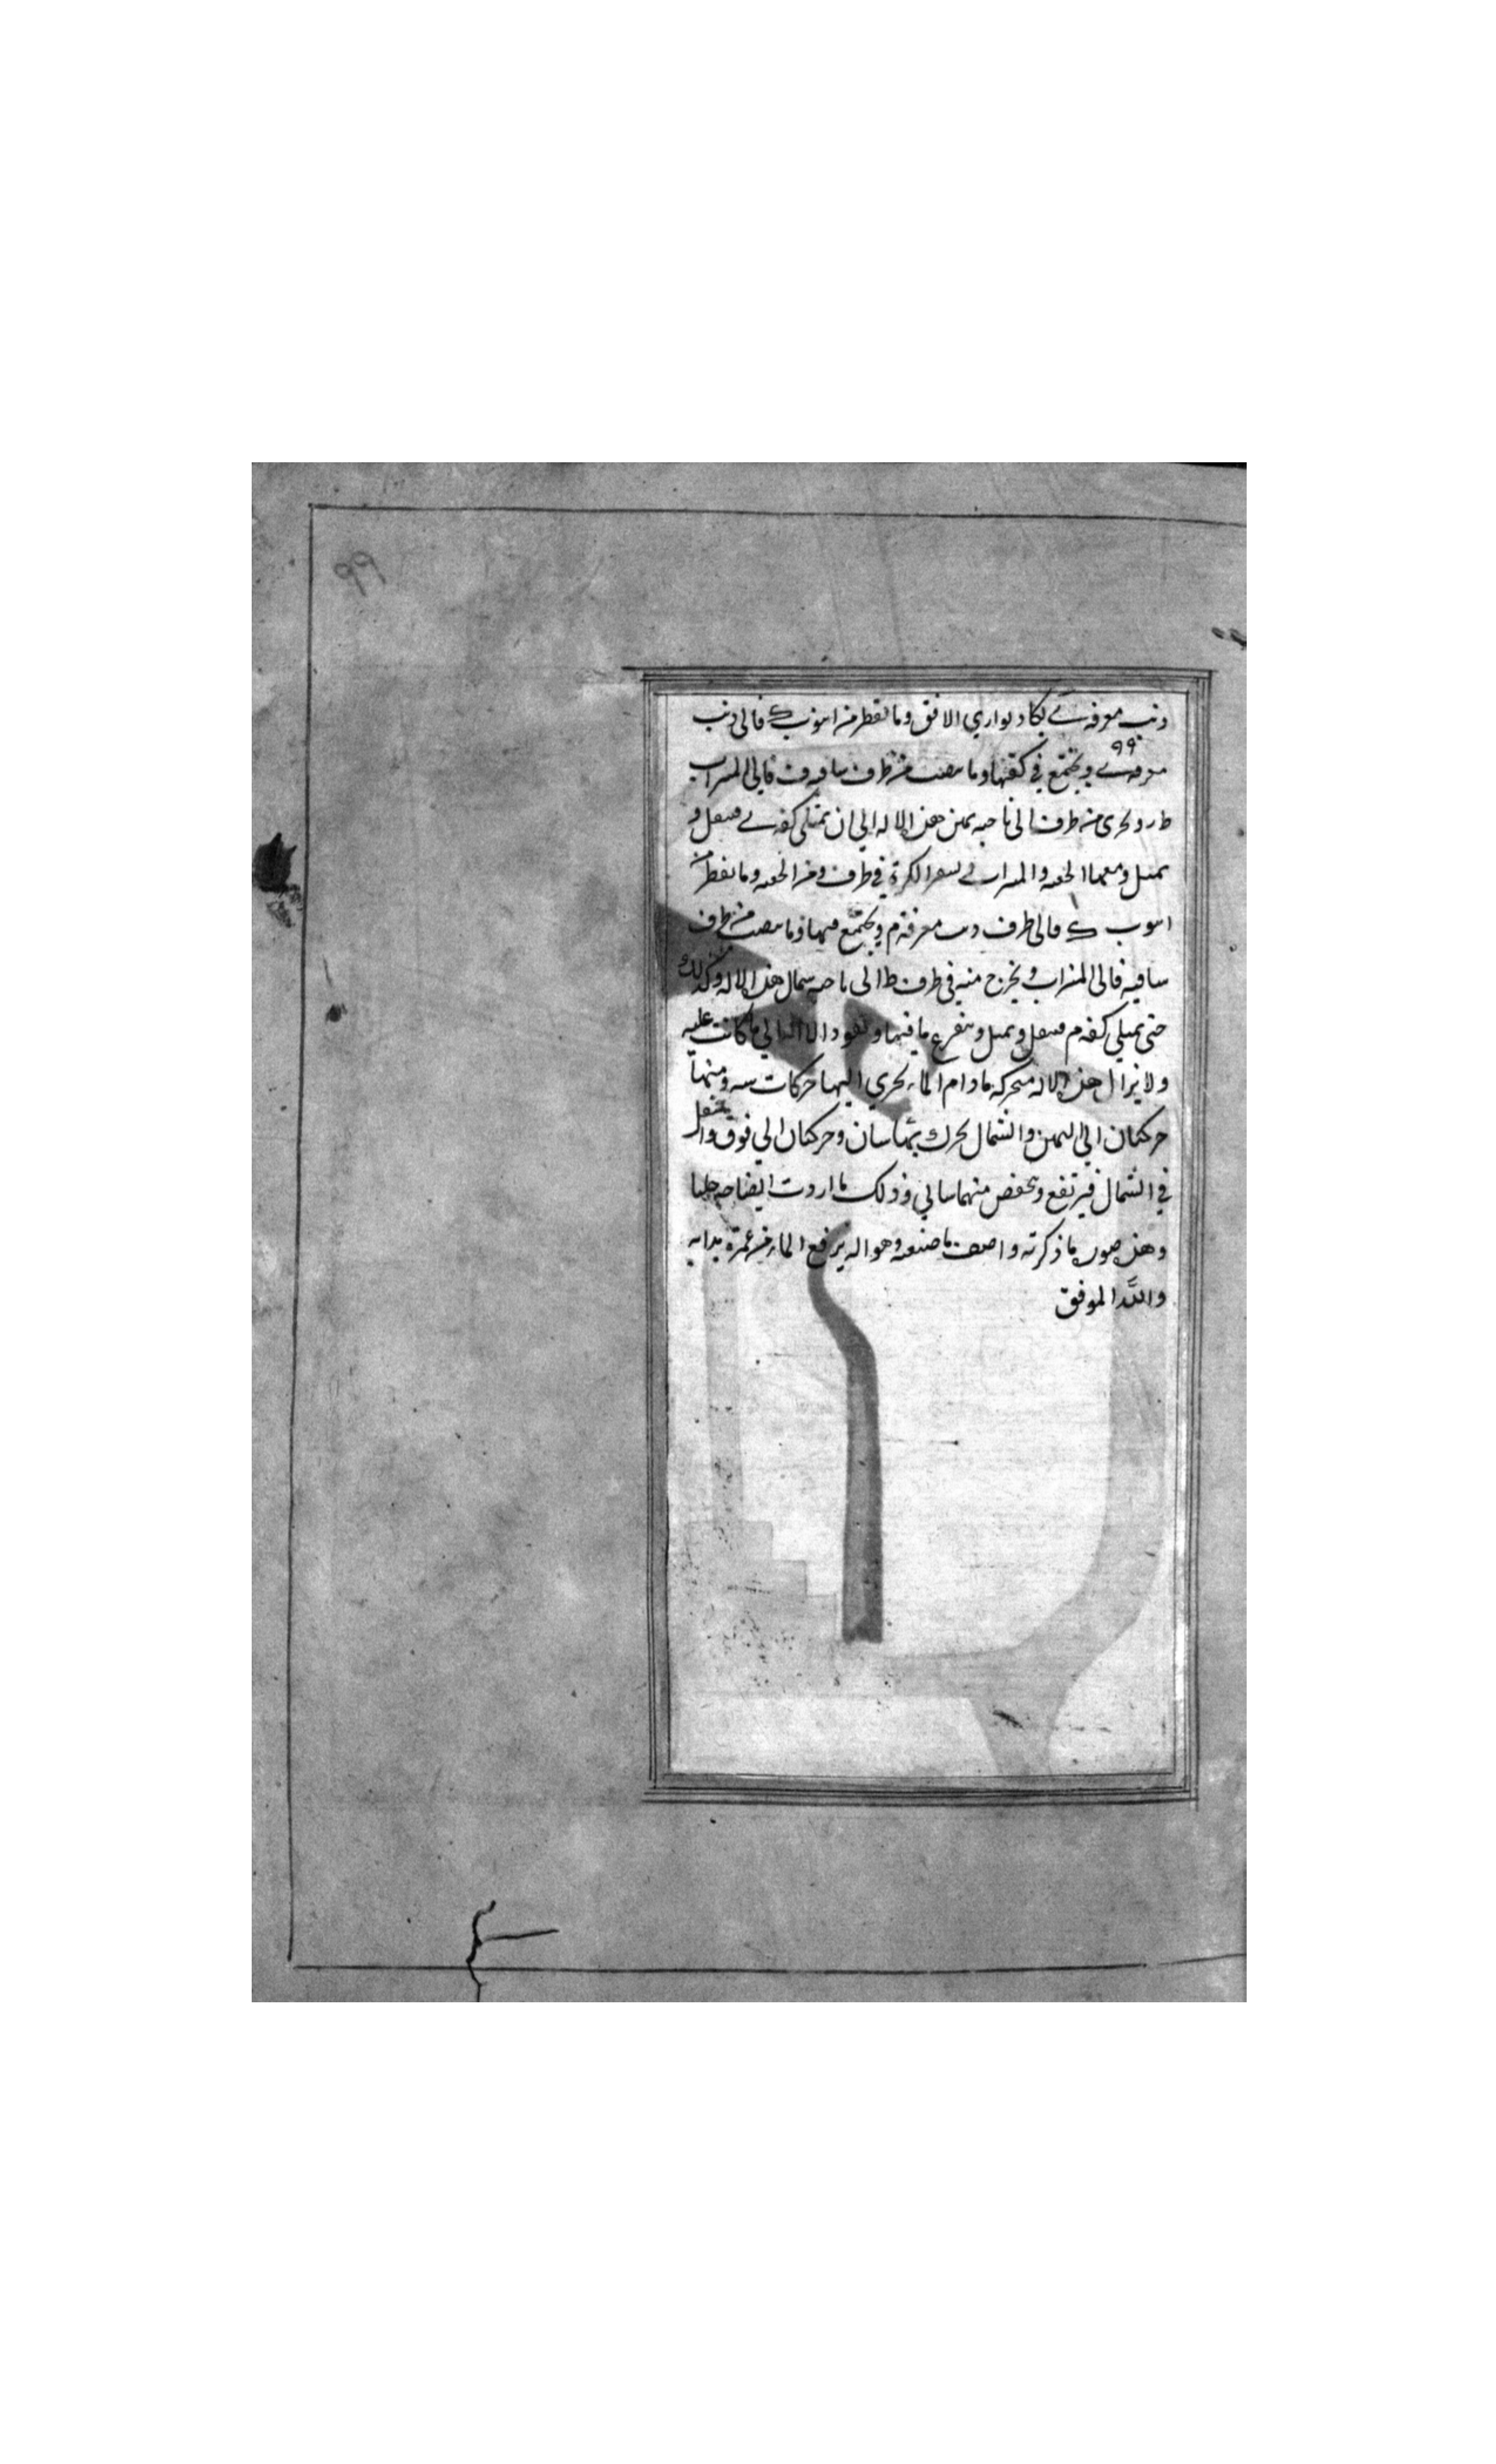 ٩٩
ذنب مغرفة ے لكاد يوازي الافق وما تقطر من انبوب ك فالى ذنب
٩٩
مغرفة ے ويجتمع في كفتها وما ينصب من طرف ساقية ف فالى الميزاب
ط ر و يجرى من طرف الى ناحية يمين هذه الاله الى ان تمتلى كفة ے فتثقل و
تميل ومعها والميزاب الكرة في طرف وما تقطر من
انبوب ك فالى طرف ذنب مغرفة م ويجتمع فيها وما ينصب من طرف
ساقية فالى الميزاب ويخرج منه في طرف ط الى ناحية شمال هذه الاله وكذلك
حتى تمتلي كفة م فتثقل وتميل ويتفرغ ما فيها وتعود الالة الي ما كانت عليه
ولا تزال هذه الاله متحركة ما دام الماء يجري اليها حركات منها
حركتان الي اليمين والشمال يحرك بهما وحركتان الي فوق و
في الشمال فيرتفع وينخفض منهما وذلك ما اردت ايضاحه جليا
وهذه صورة ما ذكرته واصف ما صنعته وهو اله يرفع الماء من غمرة بدابه
والله الموفق